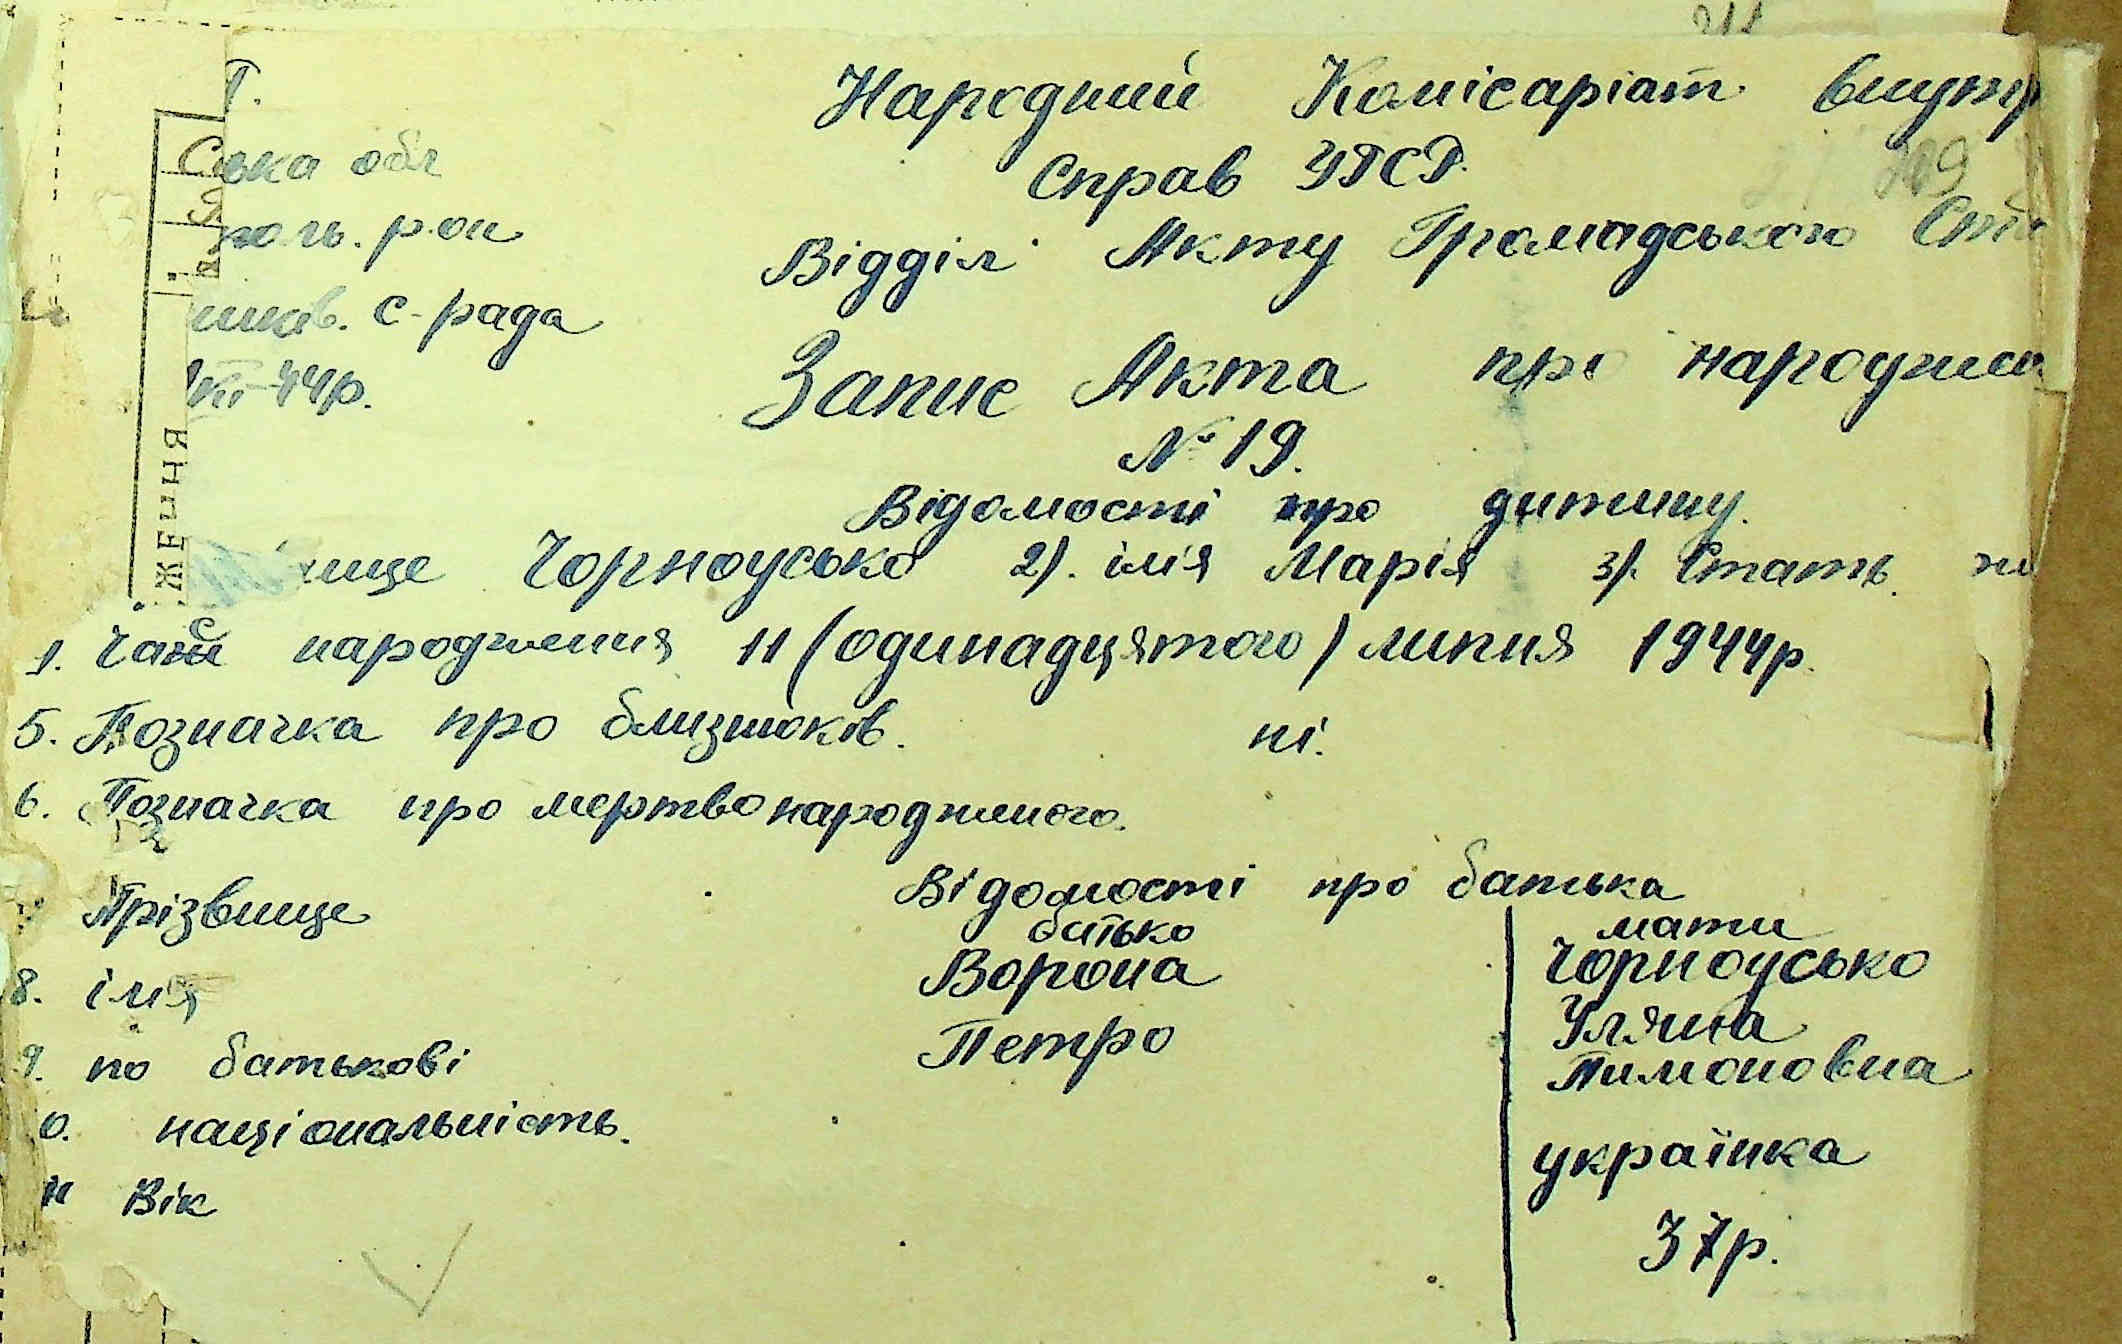 Народний Комісаріат внутр
Справ УРСР.
ська обл
поль. р-он
Відділ Акту Громадського Ста
ників. с-рада
44р.
Запис Акта про народжен
№ 19.
Відомості про дитину.
ище Чорноусько 2). імя Марія 3). Стать
ЖЕННЯ
Час народження 11 (одинадцятого) липня 1944р.
5. Позначка про близнюків. ні.
6. Позначка про мертвонародженого.
Відомості про батька
Прізвище батько мати
Ворона Чорноусько
8. імя Петро Уляна
9. по батькові Пимоновна
0. національність. українка
11 Вік 37р.